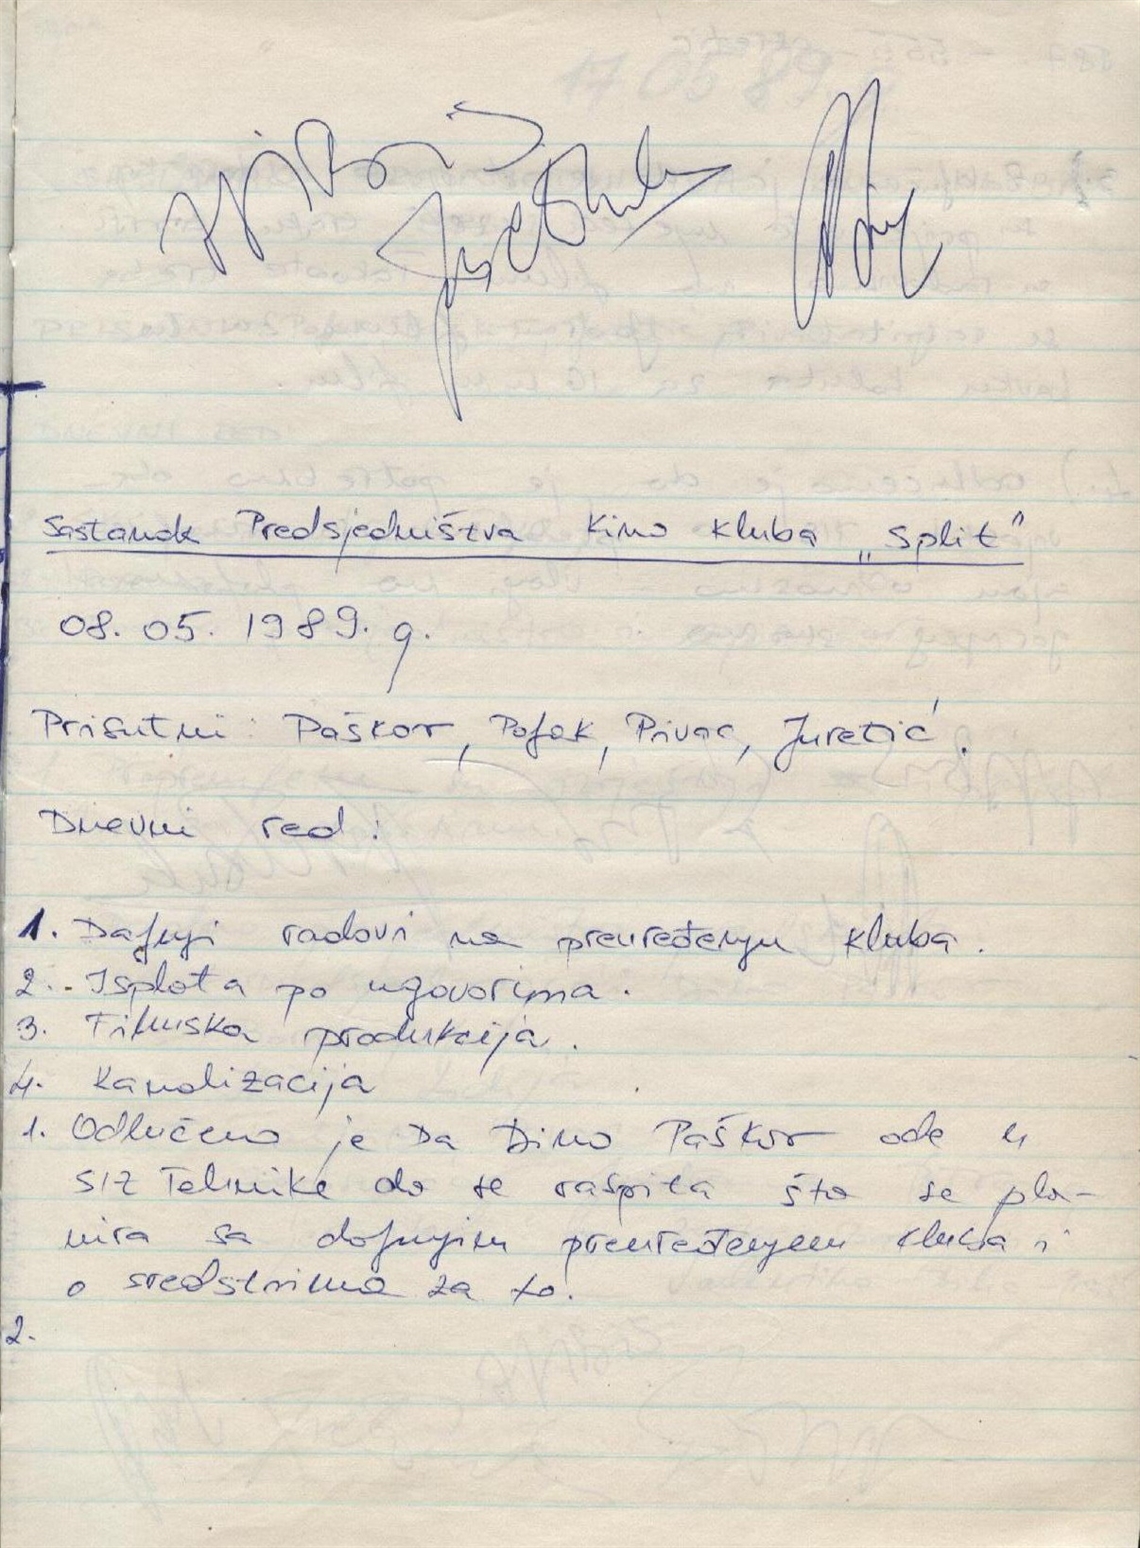 Sastanak Predsjedništva Kino kluba „Split"
08. 05. 1989. g.
Prisutni: Paškov, Poljak, Privac, Juretić.
Dnevni red:
1. Daljnji radovi na preuređenju kluba.
2. Isplata po ugovorima.
3. Filmska produkcija.
4. Kanalizacija
1. Odlučeno je Da Dino Paškov ode u
SIZ Tehnike da se raspita što se pla-
nira sa daljnjim preuređenjem kluba i
o sredstvima za to.
2.